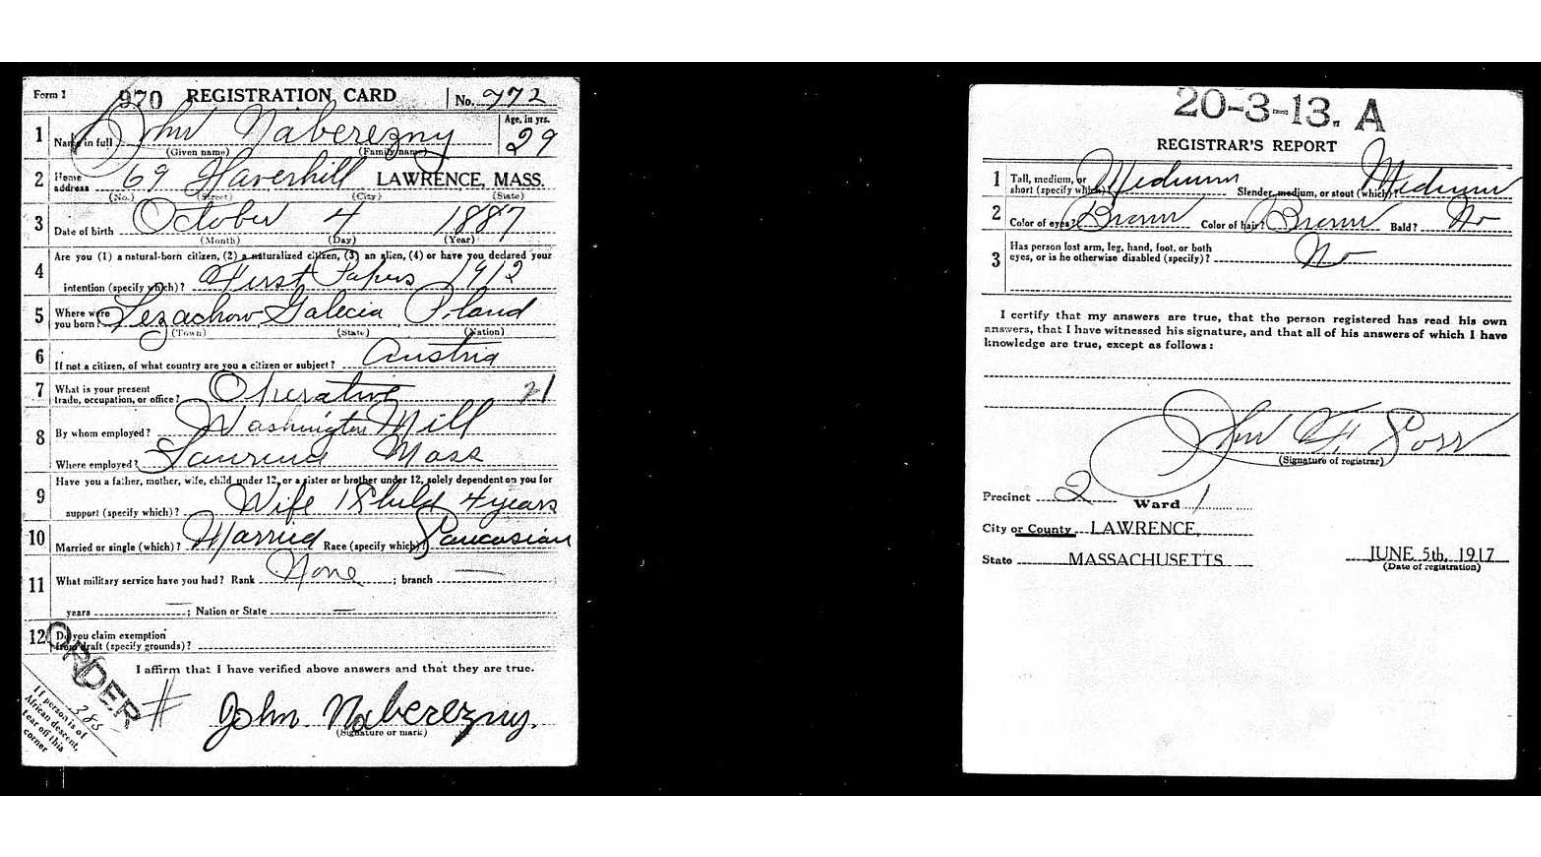 Form 1 970 REGISTRATION CARD No. 772
1 Name in full John Naberezny Age, in yrs. 29
(Given name) (Family name)
2 Home address 69 Haverhill LAWRENCE, MASS.
(No.) (Street) (City) (State)
3 Date of birth October 4 1887
(Month) (Day) (Year)
4 Are you (1) a natural-born citizen, (2) a naturalized citizen, (3) an alien, (4) or have you declared your
intention (specify which)? First Papers 1912
5 Where were you born? Lezachow Galecia Poland
(Town) (State) (Nation)
6 If not a citizen, of what country are you a citizen or subject? Austria
7 What is your present trade, occupation, or office? Operative 21
8 By whom employed? Washington Mill
Where employed? Lawrence Mass
9 Have you a father, mother, wife, child under 12, or a sister or brother under 12, solely dependent on you for
support (specify which)? Wife 1 Child 4 years
10 Married or single (which)? Married Race (specify which)? Caucasian
11 What military service have you had? Rank None ; branch
years ; Nation or State
12 Do you claim exemption from draft (specify grounds)?
I affirm that I have verified above answers and that they are true.
ORDER
385
# John Naberezny.
(Signature or mark)
If person is of
African descent,
tear off this
corner
20-3-13. A
REGISTRAR'S REPORT
1 Tall, medium, or short (specify which)? Medium Slender, medium, or stout (which)? Medium
2 Color of eyes? Brown Color of hair? Brown Bald? No
3 Has person lost arm, leg, hand, foot, or both eyes, or is he otherwise disabled (specify)? No
I certify that my answers are true, that the person registered has read his own
answers, that I have witnessed his signature, and that all of his answers of which I have
knowledge are true, except as follows:
John F. Porr
(Signature of registrar)
Precinct 2 Ward 1
City or County LAWRENCE,
State MASSACHUSETTS JUNE 5th, 1917
(Date of registration)